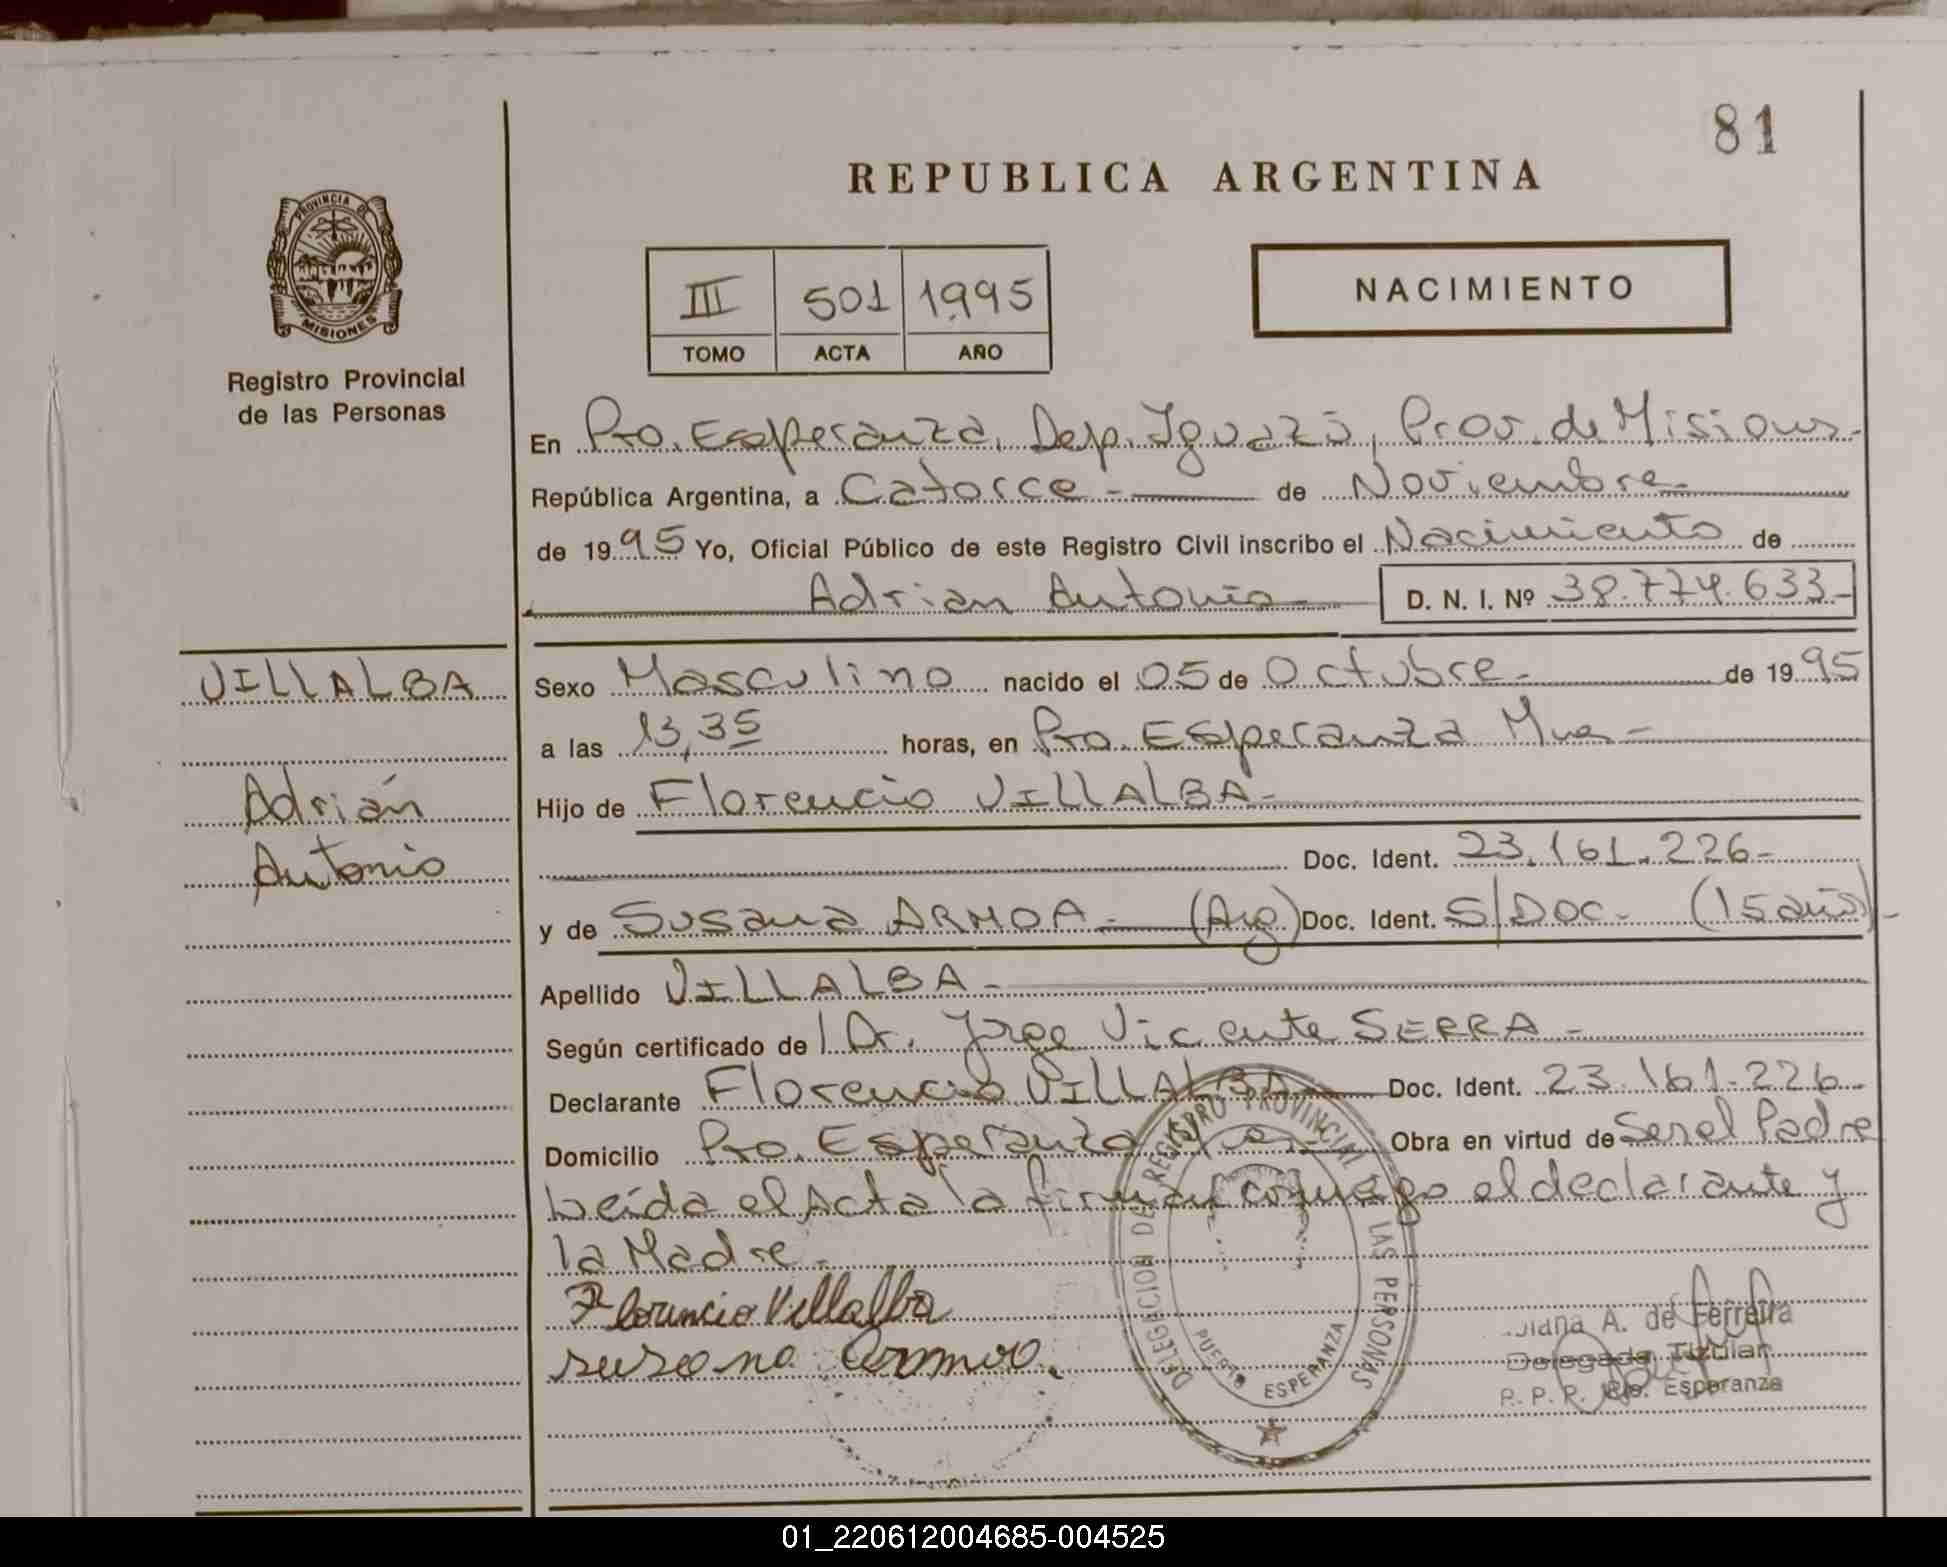 81
REPUBLICA ARGENTINA
PROVINCIA DE
MISIONES
Registro Provincial
de las Personas
III 501 1995
TOMO ACTA AÑO
NACIMIENTO
En Pto. Esperanza, Dep. Iguazú, Prov. de Misiones-
República Argentina, a Catorce - de Noviembre-
de 1995 Yo, Oficial Público de este Registro Civil inscribo el Nacimiento de
Adrian Antonio- D. N. I. Nº 38.774.633-
VILLALBA
Adrián
Antonio
Sexo Masculino nacido el 05 de Octubre- de 1995
a las 13,35 horas, en Pto. Esperanza Mnes-
Hijo de Florencio VILLALBA-
Doc. Ident. 23.161.226-
y de Susana ARMOA- (Arg) Doc. Ident. S/DOC- (15 años)-
Apellido VILLALBA-
Según certificado de l Dr. Jorge Vicente SERRA-
Declarante Florencio VILLALBA- Doc. Ident. 23.161.226-
Domicilio Pto. Esperanza Obra en virtud de Ser el Padre
Leída el Acta la firman conmigo el declarante y
la Madre.-
Florencio Villalba
susana Armoa.
DELEGACION DE REGISTRO PROVINCIAL DE LAS PERSONAS
PUERTO ESPERANZA
A. de Ferreira
Delegada Titular
R. P. P. Pto. Esperanza
01_220612004685-004525